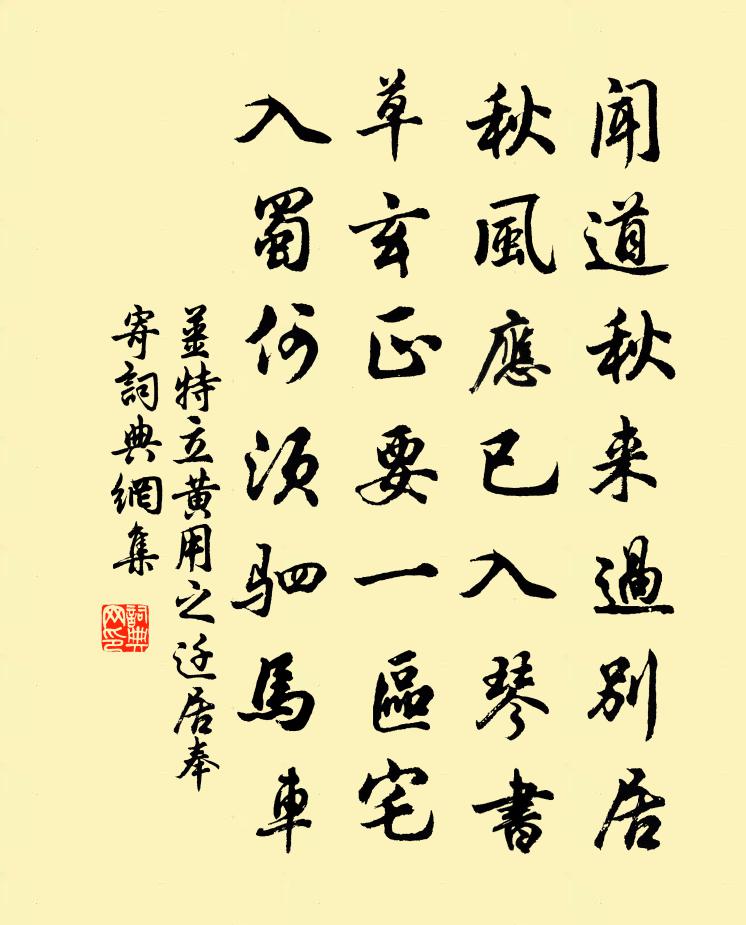 聞道秋来過別居
秋風應已入琴書
草玄正要一區宅
入蜀何須駟馬車
薑特立黄用之迁居奉
寄詞典網集
詞典
网印